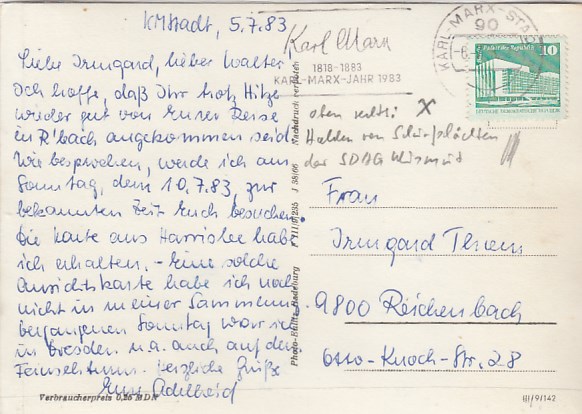 KMstadt, 5.7.83
Liebe Irmgard, lieber Walter
Ich hoffe, daß Ihr trotz Hitze
wieder gut von Eurer Reise
in R'bach angekommen seid.
Wie besprochen, werde ich am
Sonntag, dem 10.7.83, zur
bekannten Zeit Euch besuchen.
Die Karte aus Harrislee habe
ich erhalten. - Eine solche
Ansichtskarte habe ich noch
nicht in meiner Sammlung
Vergangenen Sonntag war ich
in Dresden u.a. auch auf dem
Fernsehturm. Herzliche Grüße
Eure Adelheid
Verbraucherpreis 0,25 MDN
Karl Marx
1818-1883
KARL-MARX-JAHR 1983
KARL-MARX-STADT
90
Palast der Republik
10
DEUTSCHE DEMOKRATISCHE REPUBLIK
oben rechts: X
Halden von Schürfschächten
der SDAG Wismut
Photo-Einlis, Radeburg F III/9/235 J 38/66 Nachdruck verboten
Frau
Irmgard Thiem
9800 Reichenbach
Otto-Knoch-Str. 28
III/9/142